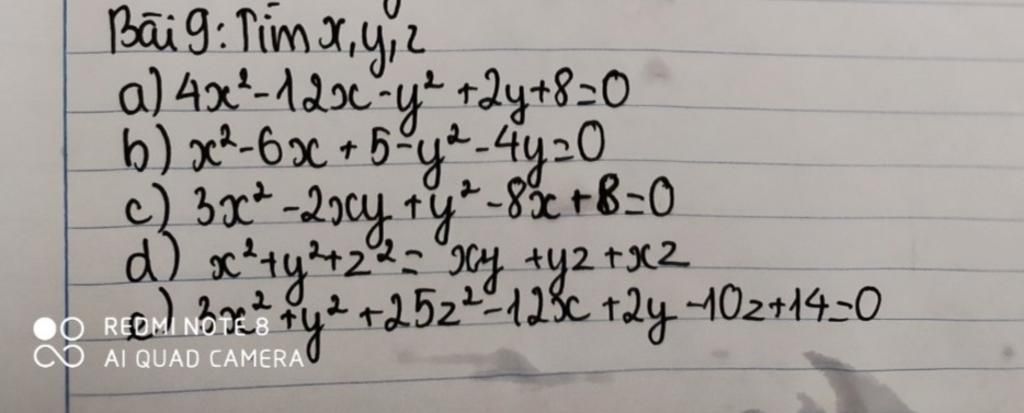 Bài 9: Tìm x, y, z
a) 4x² - 12x - y² + 2y + 8 = 0
b) x² - 6x + 5 - y² - 4y = 0
c) 3x² - 2xy + y² - 8x + 8 = 0
d) x² + y² + z² = xy + yz + xz
e) 3x² + y² + 25z² - 12x + 2y - 10z + 14 = 0
REDMI NOTE 8
AI QUAD CAMERA